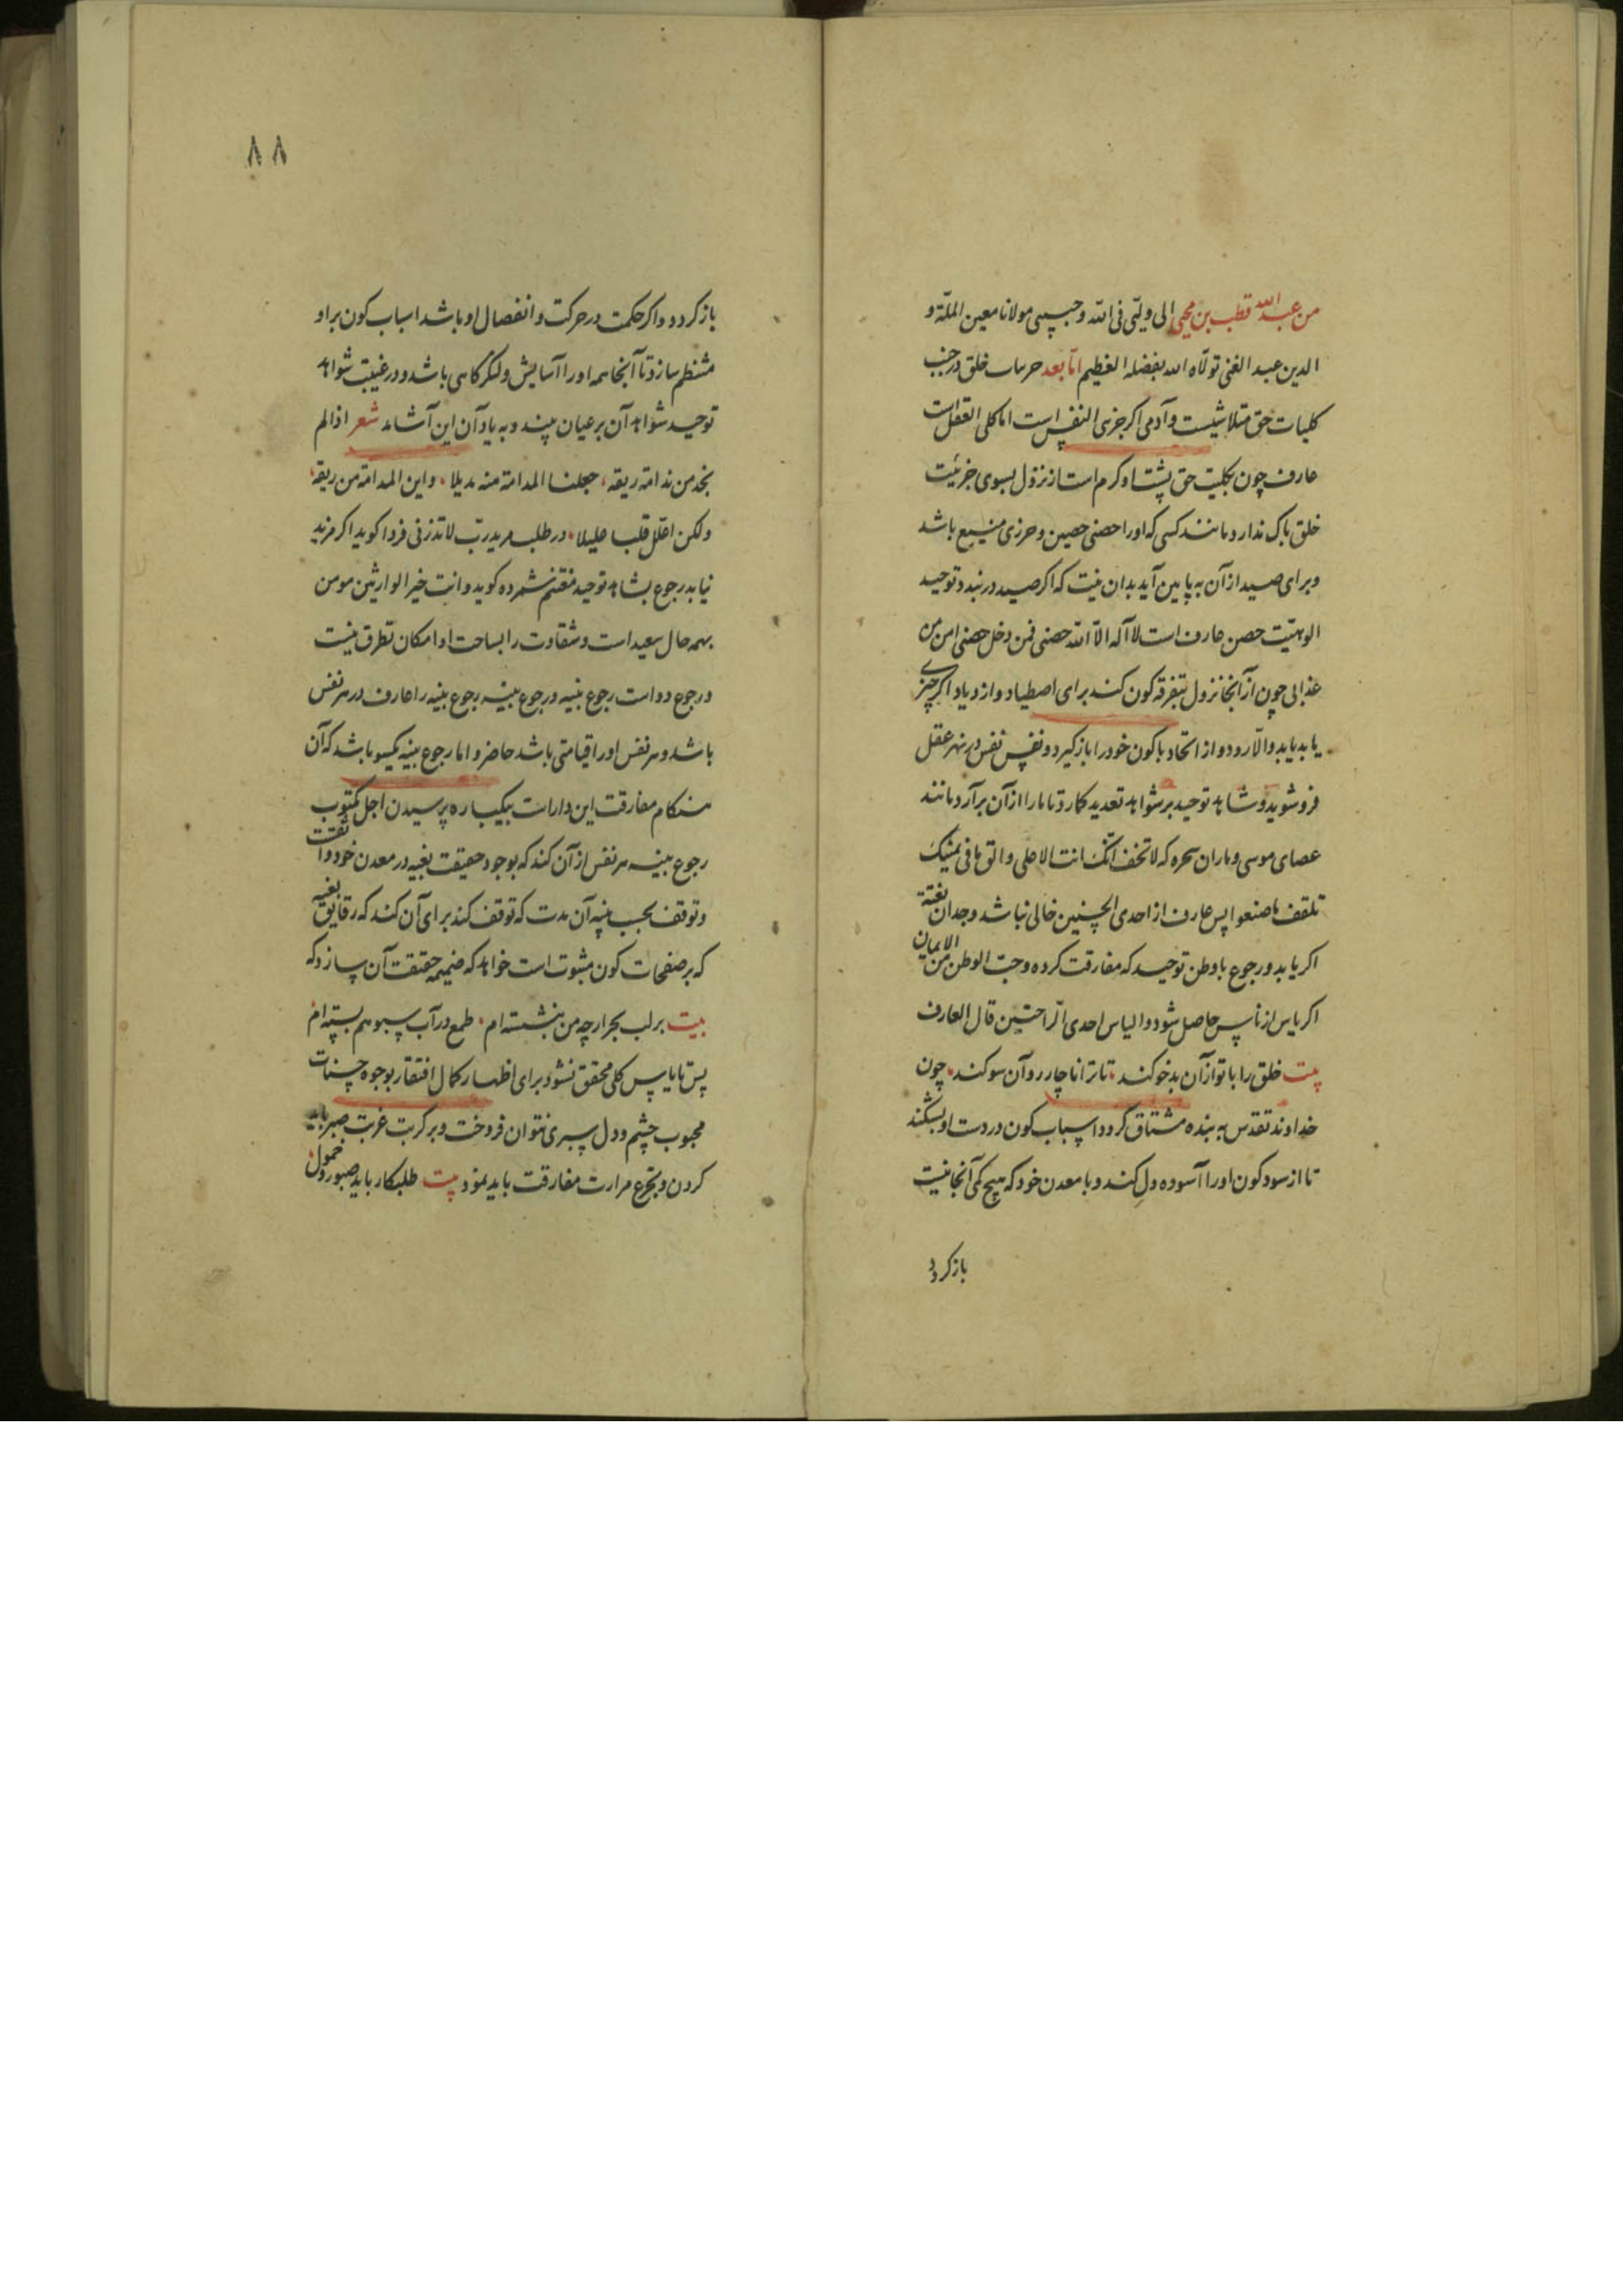 من عبدالله قطب بن محیی الی ولیّی فی الله وحبیبی مولانا معین الملّة و
الدین عبد الغنی تولّاه الله بفضله العظیم امّا بعد خلق در جنب
کلیات حق متلاشیست و آدمی اکر جزی النفس است اما کلی العقل است
عارف چون بکلیت حق پشت او کرم است از نزول بسوی جزئیت
خلق باک ندارد مانند کسی که او را حصنی حصین و حرزی منیع باشد
و برای صید از آن به پایین آید بدان نیت که اکر صید در بند و توحید
الوهیّت حصن عارف است لا آله الّا الله حصنی فمن دخل حصنی امن من
عذابی چون از آنجا نزول بتفرقه کون کند برای اصطیاد و ازدیاد اکر چیزی
یابد یابد والّا رود و از اتحاد با کون خود را بازکیرد و نفس نفس در نهر عقل
فرو شوید و شاهد توحید بر شواهد تعدید کمارد تا ما را از آن برآرد مانند
عصای موسی و ماران سحره که لا تخف انّک انت الاعلی و الق ما فی یمینک
تلقف ما صنعوا پس عارف از احدی الحسنیین خالی نباشد وجدان بغته
اکر یابد و رجوع با وطن توحید که مفارقت کرده و حبّ الوطن من الایمان
اکر یاس از ناس حاصل شود و الیاس احدی الراحتین قال العارف
بیت خلق را با تو از آن بدخو کند • تا ترا ناچار رو آن سو کند • چون
خداوند تقدس به بنده مشتاق کردد اسباب کون در دست او بشکند
تا از سود کون او را آسوده دل کند و با معدن خود که هیچ کمی آنجا نیست
بازکردد
۸۸
بازکردد و اکر حکمت در حرکت و انفصال او باشد اسباب کون بر او
منتظم سازد تا آنجا همه او را آسایش و لنکرکاهی باشد و در غیبت شواهد
توحید شواهد آن بر عیان بیند و به یاد آن این آشامد شعر اذا لم
نخد من ندامة ریقه، جعلنا المدامة منه بدیلا • و این المدامة من ریقه،
ولکن اعلّل قلبا علیلا • در طلب مرید ربّ لا تذرنی فردا کوید اکر مزید
نیابد رجوع بشاهد توحید مغتنم شمرده کوید و انت خیر الوارثین مومن
بهمه حال سعید است و شقاوت را بساحت او امکان تطرق نیست
و رجوع دو است رجوع بنیه و رجوع بینه رجوع بینه را عارف در هر نفس
باشد و هر نفس او را قیامتی باشد حاضر و اما رجوع بنیه یکسو باشد که آن
هنکام مفارقت این دارات بیکباره پرسیدن اجل مکتوب
رجوع بینه هر نفس از آن کند که بوجود حقیقت بغیه در معدن خود واثقست
و توقف بحسب بنیه آن مدت که توقف کند برای آن کند که رقایق بغیه
که بر صفحات کون مثبوت است خواهد که ضمیمه حقیقت آن سازد که
بیت بر لب بحر ارچه من بنشسته ام • طمع در آب سبو هم بسته ام
پس تا یاس کلی محقق نشود برای اظهار کمال افتقار بوجوه حسنات
محبوب چشم و دل سیری نتوان فروخت و بر کربت غربت صبر باید
کردن و تجرع مرارت مفارقت باید نمود بیت طلبکار باید صبور و حمول •